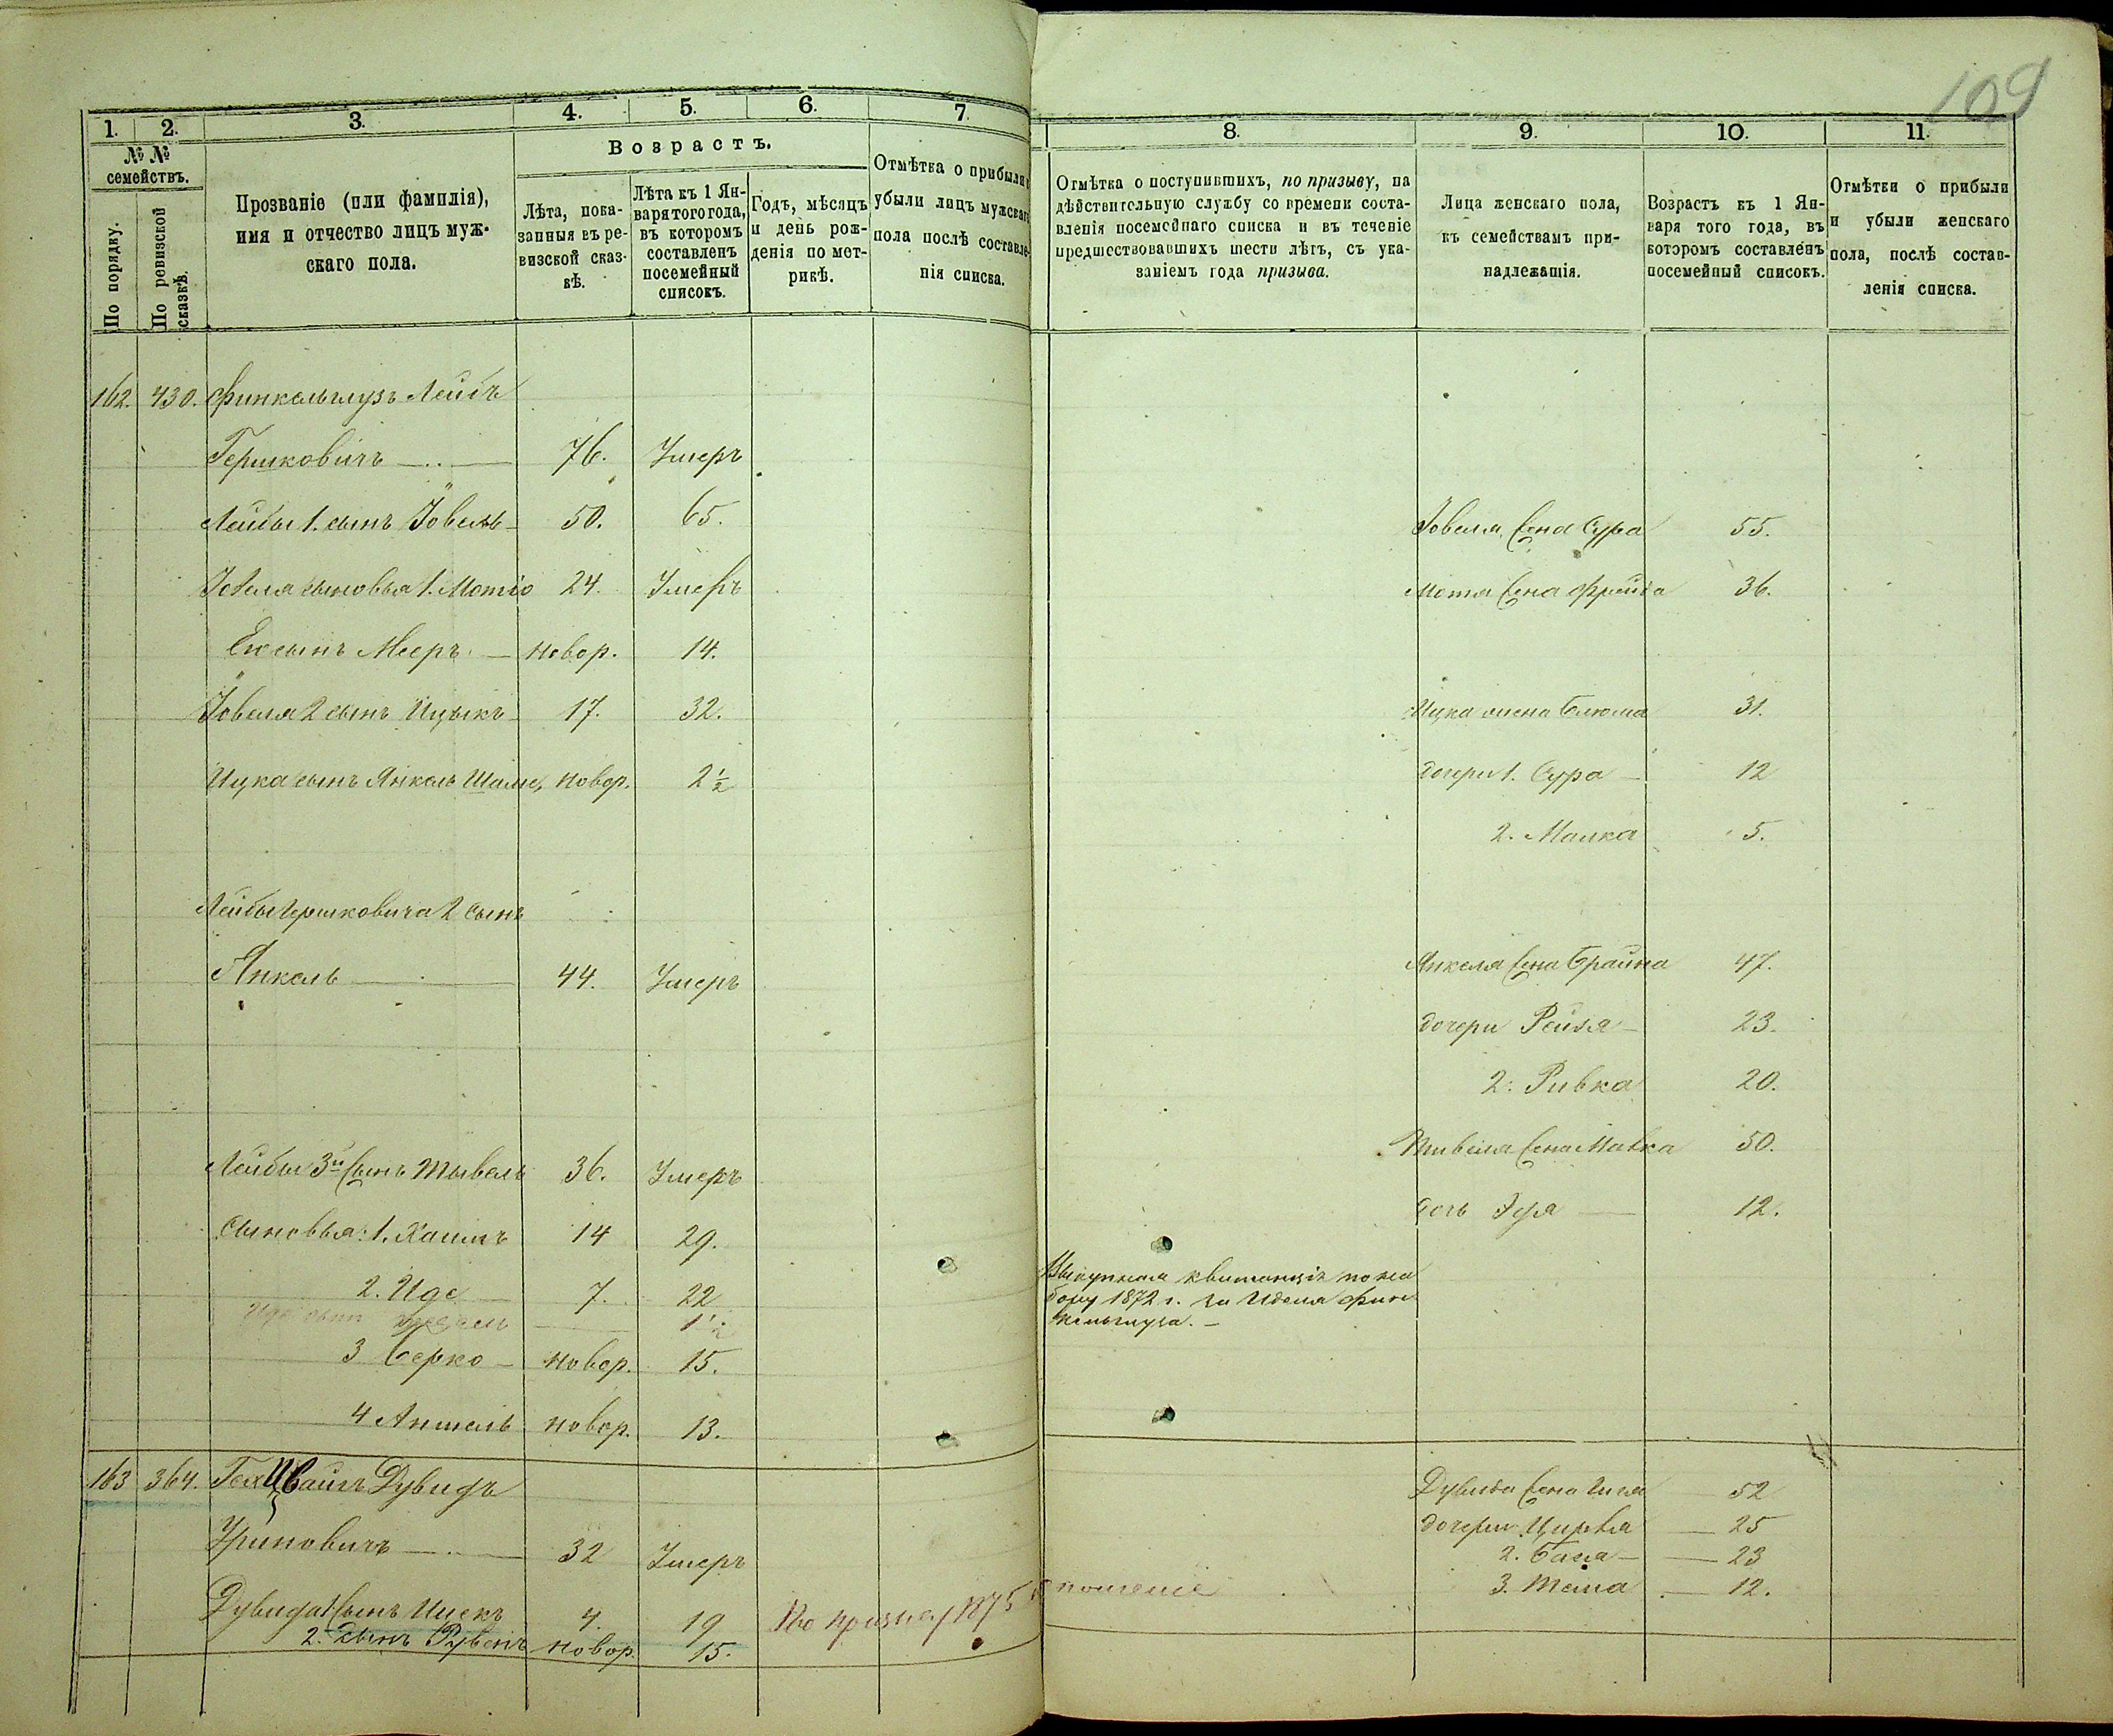 109
1.
2.
3.
4.
5.
6.
7.
8.
9.
10.
11.
№ №
семействъ.
По порядку.
По ревизской
сказкѣ.
Прозваніе (или фамилія),
имя и отчество лицъ муж-
скаго пола.
Возрастъ.
Лѣта, пока-
занныя въ ре-
визской сказ-
кѣ.
Лѣта къ 1 Ян-
варя того года,
въ которомъ
составленъ
посемейный
списокъ.
Годъ, мѣсяцъ
и день рож-
денія по мет-
рикѣ.
Отмѣтка о прибыли и
убыли лицъ мужскаго
пола послѣ составле-
нія списка.
Отмѣтка о поступившихъ, по призыву, на
дѣйствительную службу со времени соста-
вленія посемейнаго списка и въ теченіе
предшествовавшихъ шести лѣтъ, съ ука-
заніемъ года призыва.
Лица женскаго пола,
къ семействамъ при-
надлежащія.
Возрастъ къ 1 Ян-
варя того года, въ
которомъ составленъ
посемейный списокъ.
Отмѣтки о прибыли
и убыли женскаго
пола, послѣ состав-
ленія списка.
162. 430. Финкельглузъ Лейбъ
Гершковичъ — 76. Умеръ
Лейбы 1. сынъ Іовель 50. 65. Іовеля жена Сура 55.
Іовеля сыновья 1. Мотіо 24. Умеръ Мотя жена Фрейда 36.
Его сынъ Мееръ — новор. 14.
Іовеля 2 сынъ Ицыкъ 17. 32. Ицка жена Блюма 31.
Ицка сынъ Янкель новор. 2½ дочери 1. Сура — 12
2. Малка 5.
Лейбы Гершковича 2 сынъ
Янкель — 44. Умеръ Янкеля жена Брайна 47.
дочери Рейзя — 23.
2. Ривка 20.
Лейбы 3й сынъ Тывель 36. Умеръ Тивеля жена 50.
дочь — 12.
сыновья: 1. Хаимъ 14 29.
2. Иде 7. 22 квитанція по на
бору 1872 г. за Иделя Фин
кельглуза. —
Иде сынъ — 1½
3 Берко — новор. 15.
4 Аншель новор. 13.
163 364. Дувидъ
— 32 Умеръ
Дувида жена — 52
дочери Цирля — 25
2. Бася — 23
3. — 12.
Дувида 1 сынъ 4. 19 По призыву 1875
2. сынъ Рувенъ новор. 15.